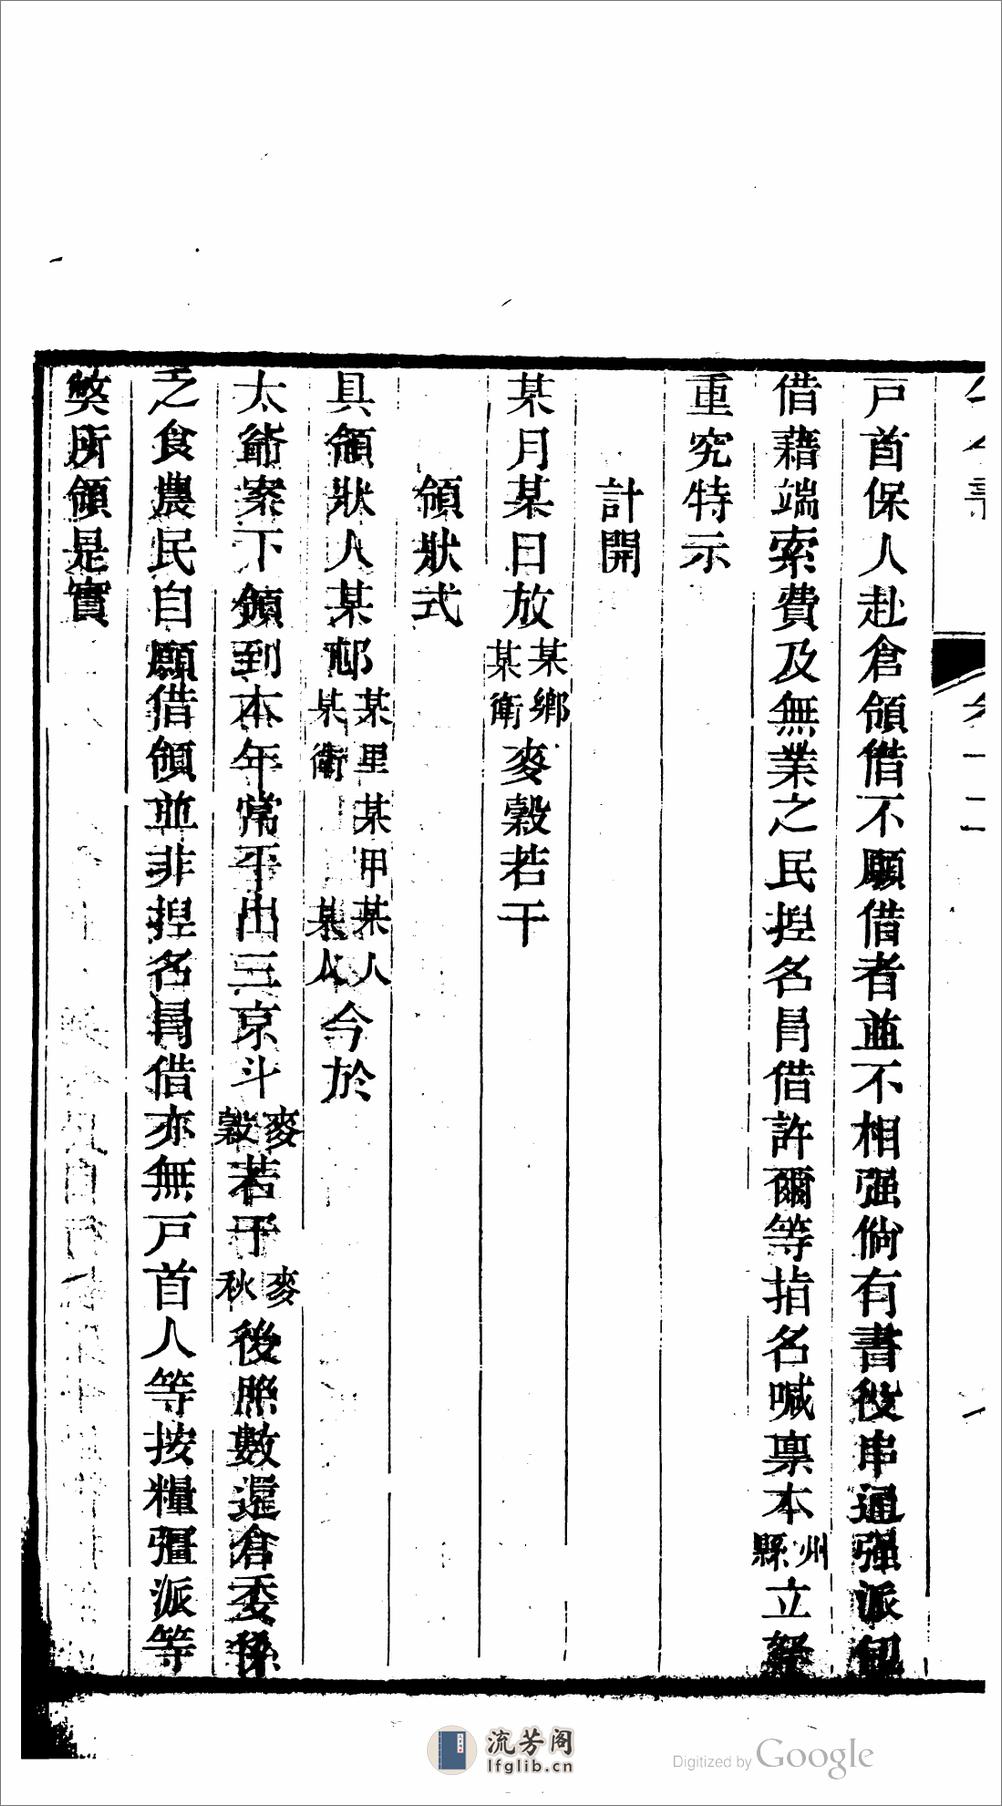 戸首保人赴倉領借不願借者並不相强倘有書役串通强派包
借藉端索費及無業之民揑名冐借許爾等指名喊禀本州縣立
重究特示
計開
某月某日放某鄉某衛麥穀若干
領狀式
具領狀人某邨某里某甲某人某衛某人今於
太爺案下領到本年常平出三京斗麥穀若干麥秋後照數還倉委係
乏食農民自願借領並非揑名冐借亦無戸首人等按糧强派等
獘所領是實
流芳阁
lfglib.cn
Digitized by Google